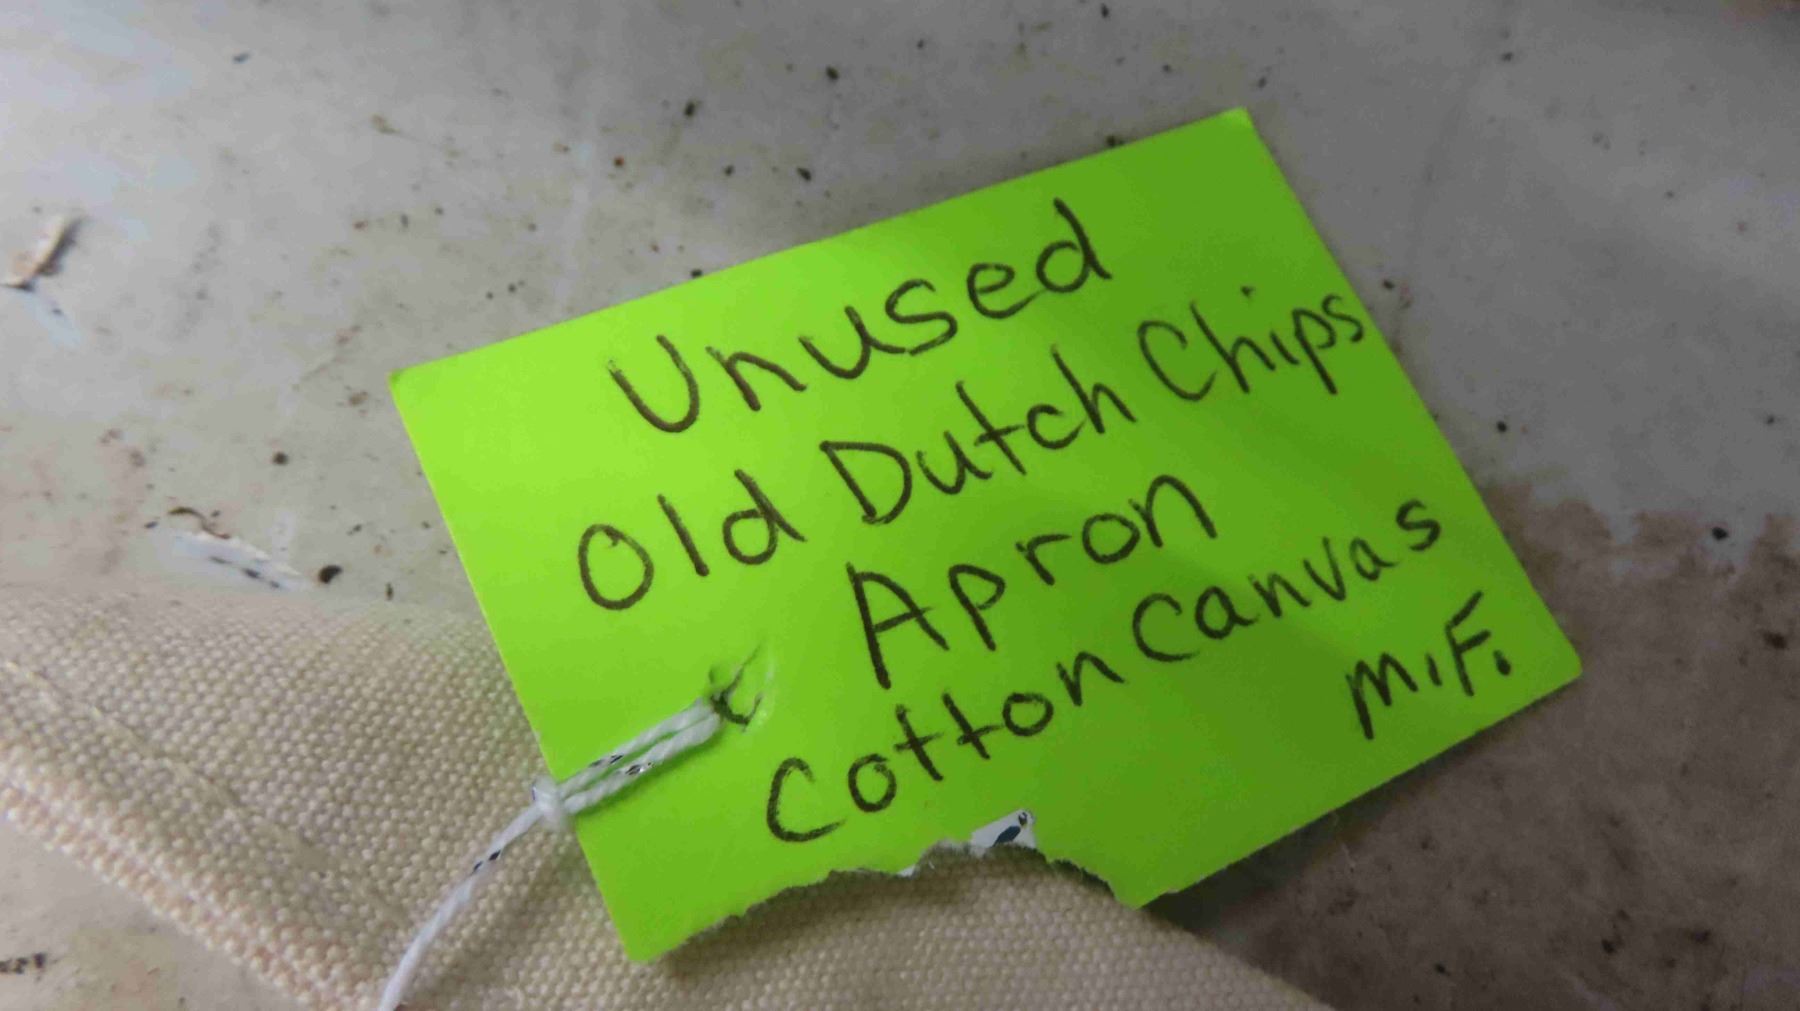 Unused
Old Dutch Chips
Apron
Cotton Canvas
M.F.